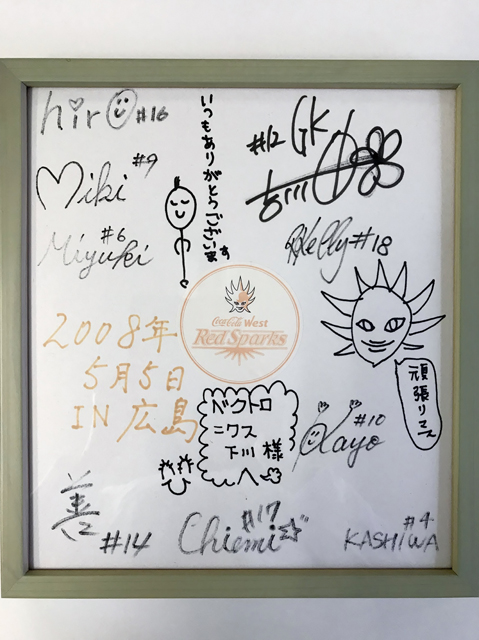 hiro #16
いつもありがとうございます
#12 GK
#9
Miki
#6
Miyuki
Kelly #18
Coca-Cola West
Red Sparks
2008年
5月5日
IN 広島
頑張リマス
ベクトロ
ニクス
下川 様
へ
#10
Kayo
善
#14
#17
Chiemi
#4
KASHIWA